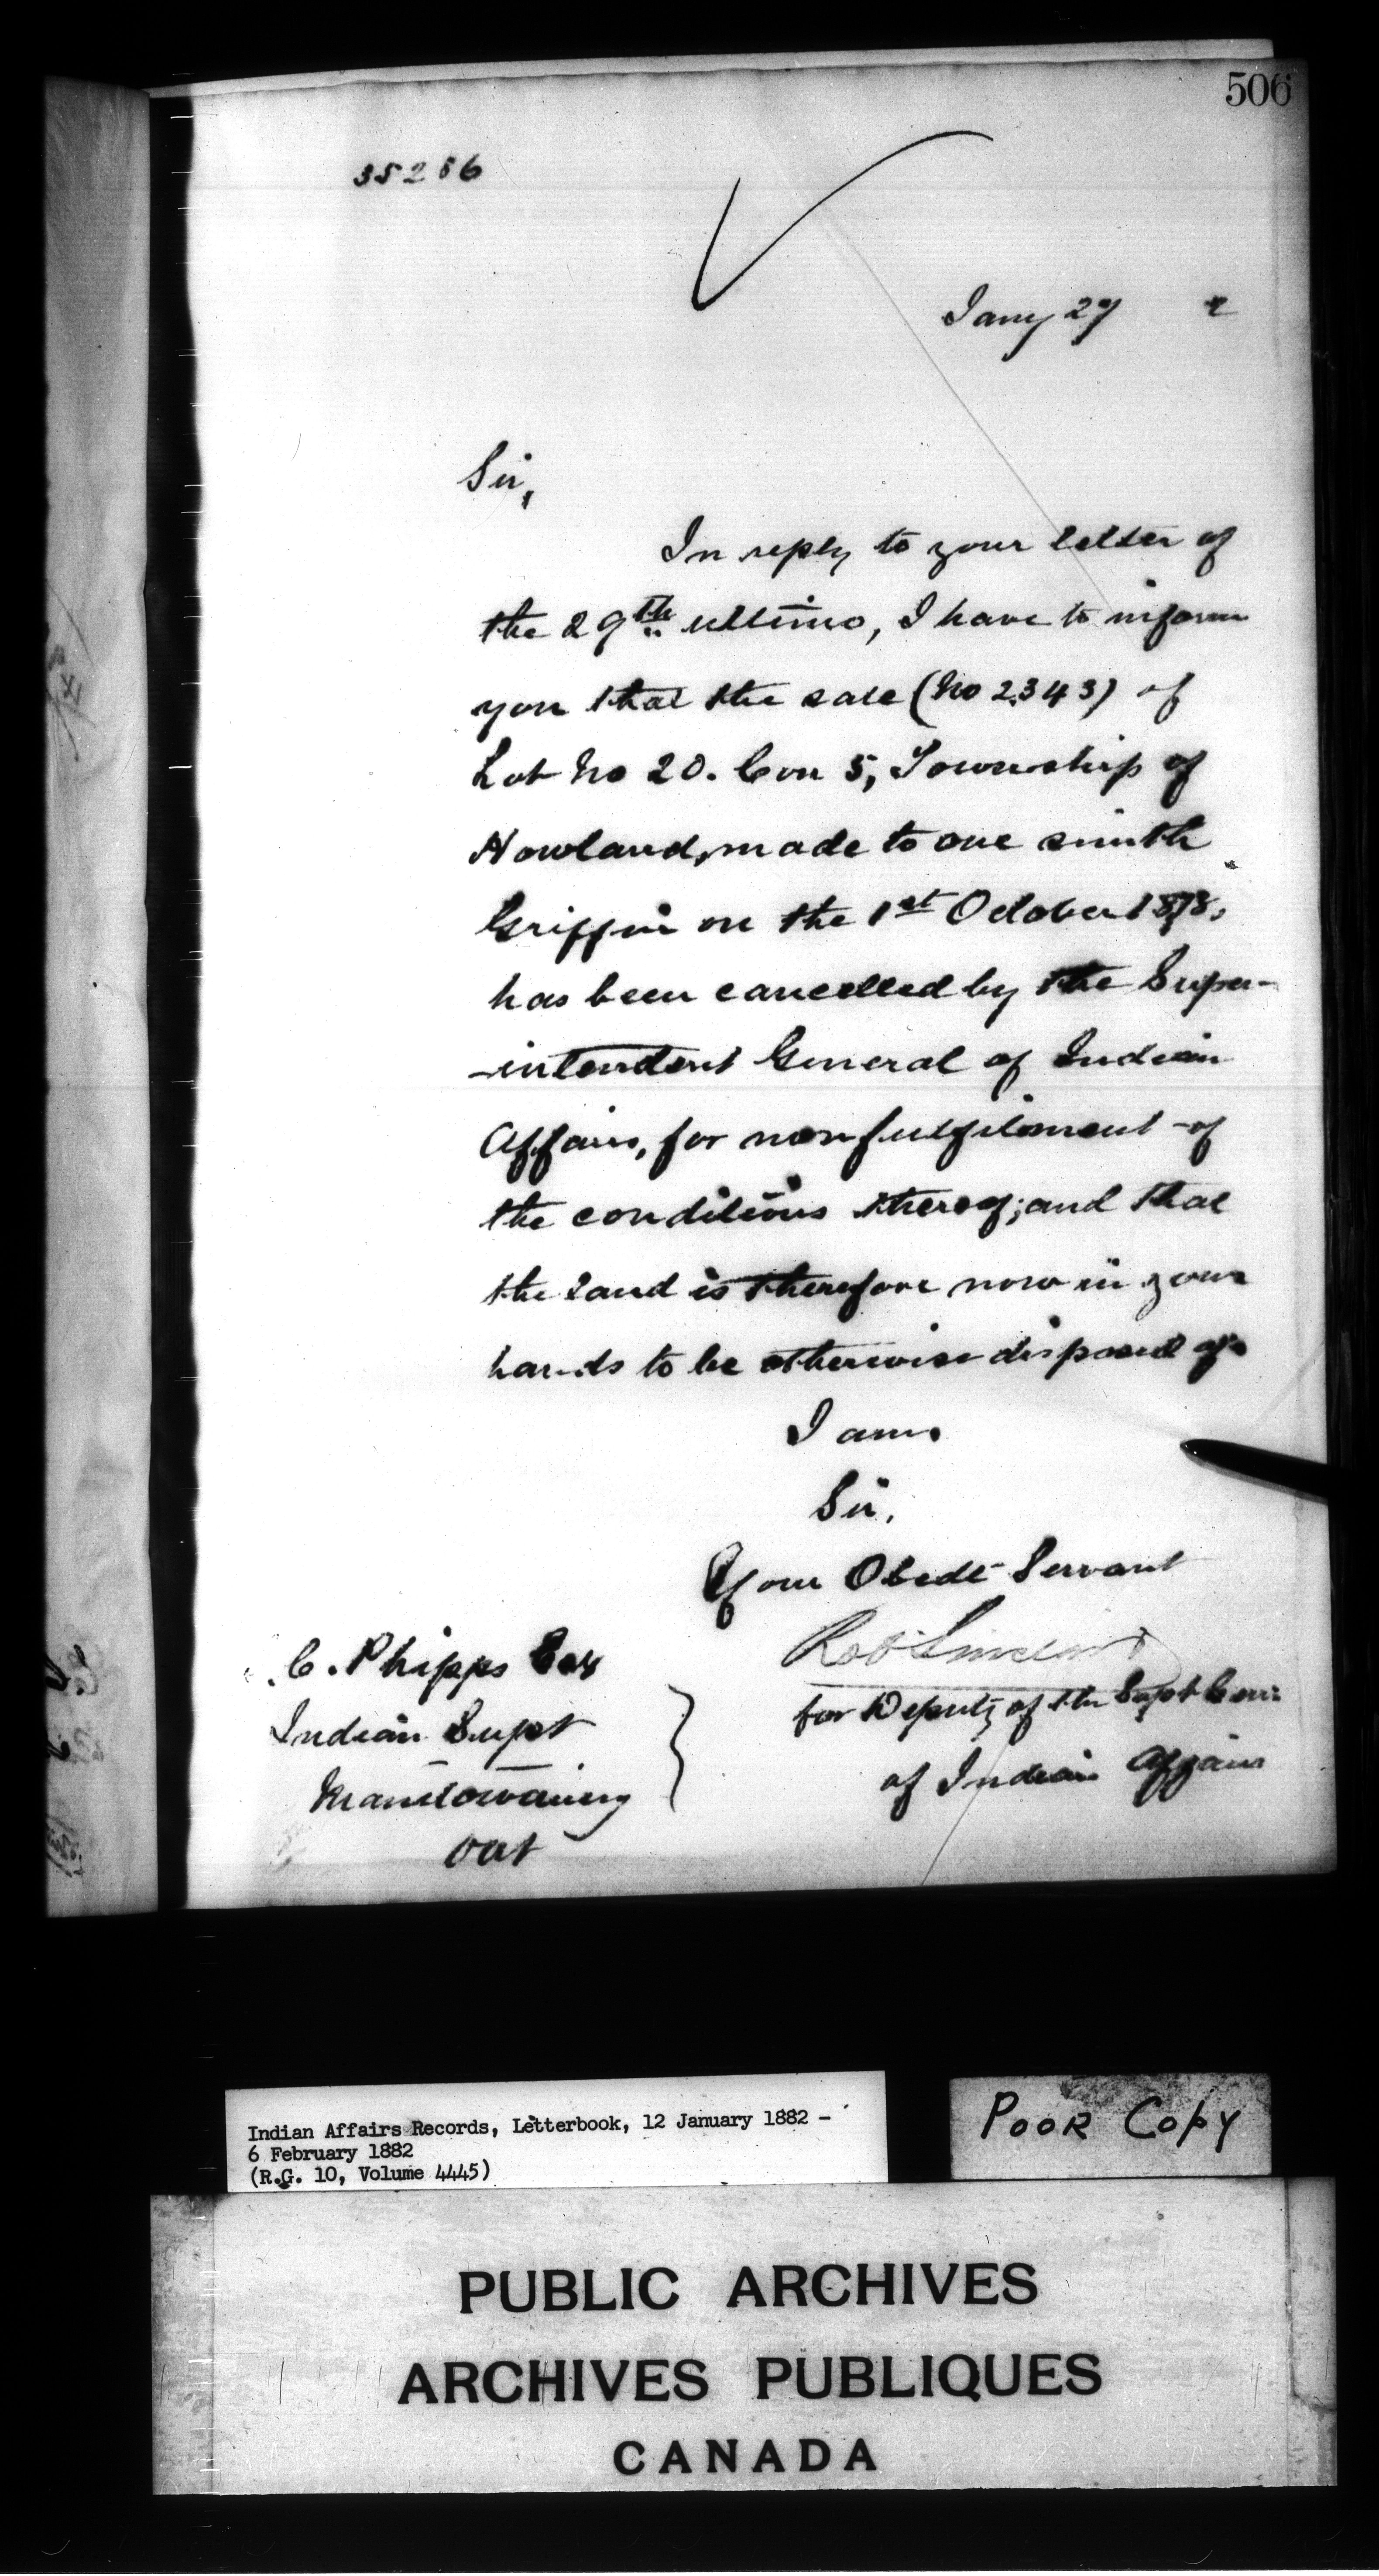 506
35286
Jany 27 2
Sir,
In reply to your letter of
the 29th ultimo, I have to inform
you that the sale (No 2343) of
Lot No 20. Con 5, Township of
Howland, made to one Smith
Griffin on the 1st October 1878,
has been cancelled by the Super-
-intendent General of Indian
Affairs, for nonfulfilment of
the conditions thereof; and that
the land is therefore now in your
hands to be otherwise disposed of.
I am.
Sir,
Your Obedt Servant
Rob Sinclair
for Deputy of the Supt Genl
of Indian Affairs
C. Phipps Esq
Indian Supt
Manitowaning
Ont
Indian Affairs Records, Letterbook, 12 January 1882 -
6 February 1882
(R.G. 10, Volume 4445)
POOR COPY
PUBLIC ARCHIVES
ARCHIVES PUBLIQUES
CANADA